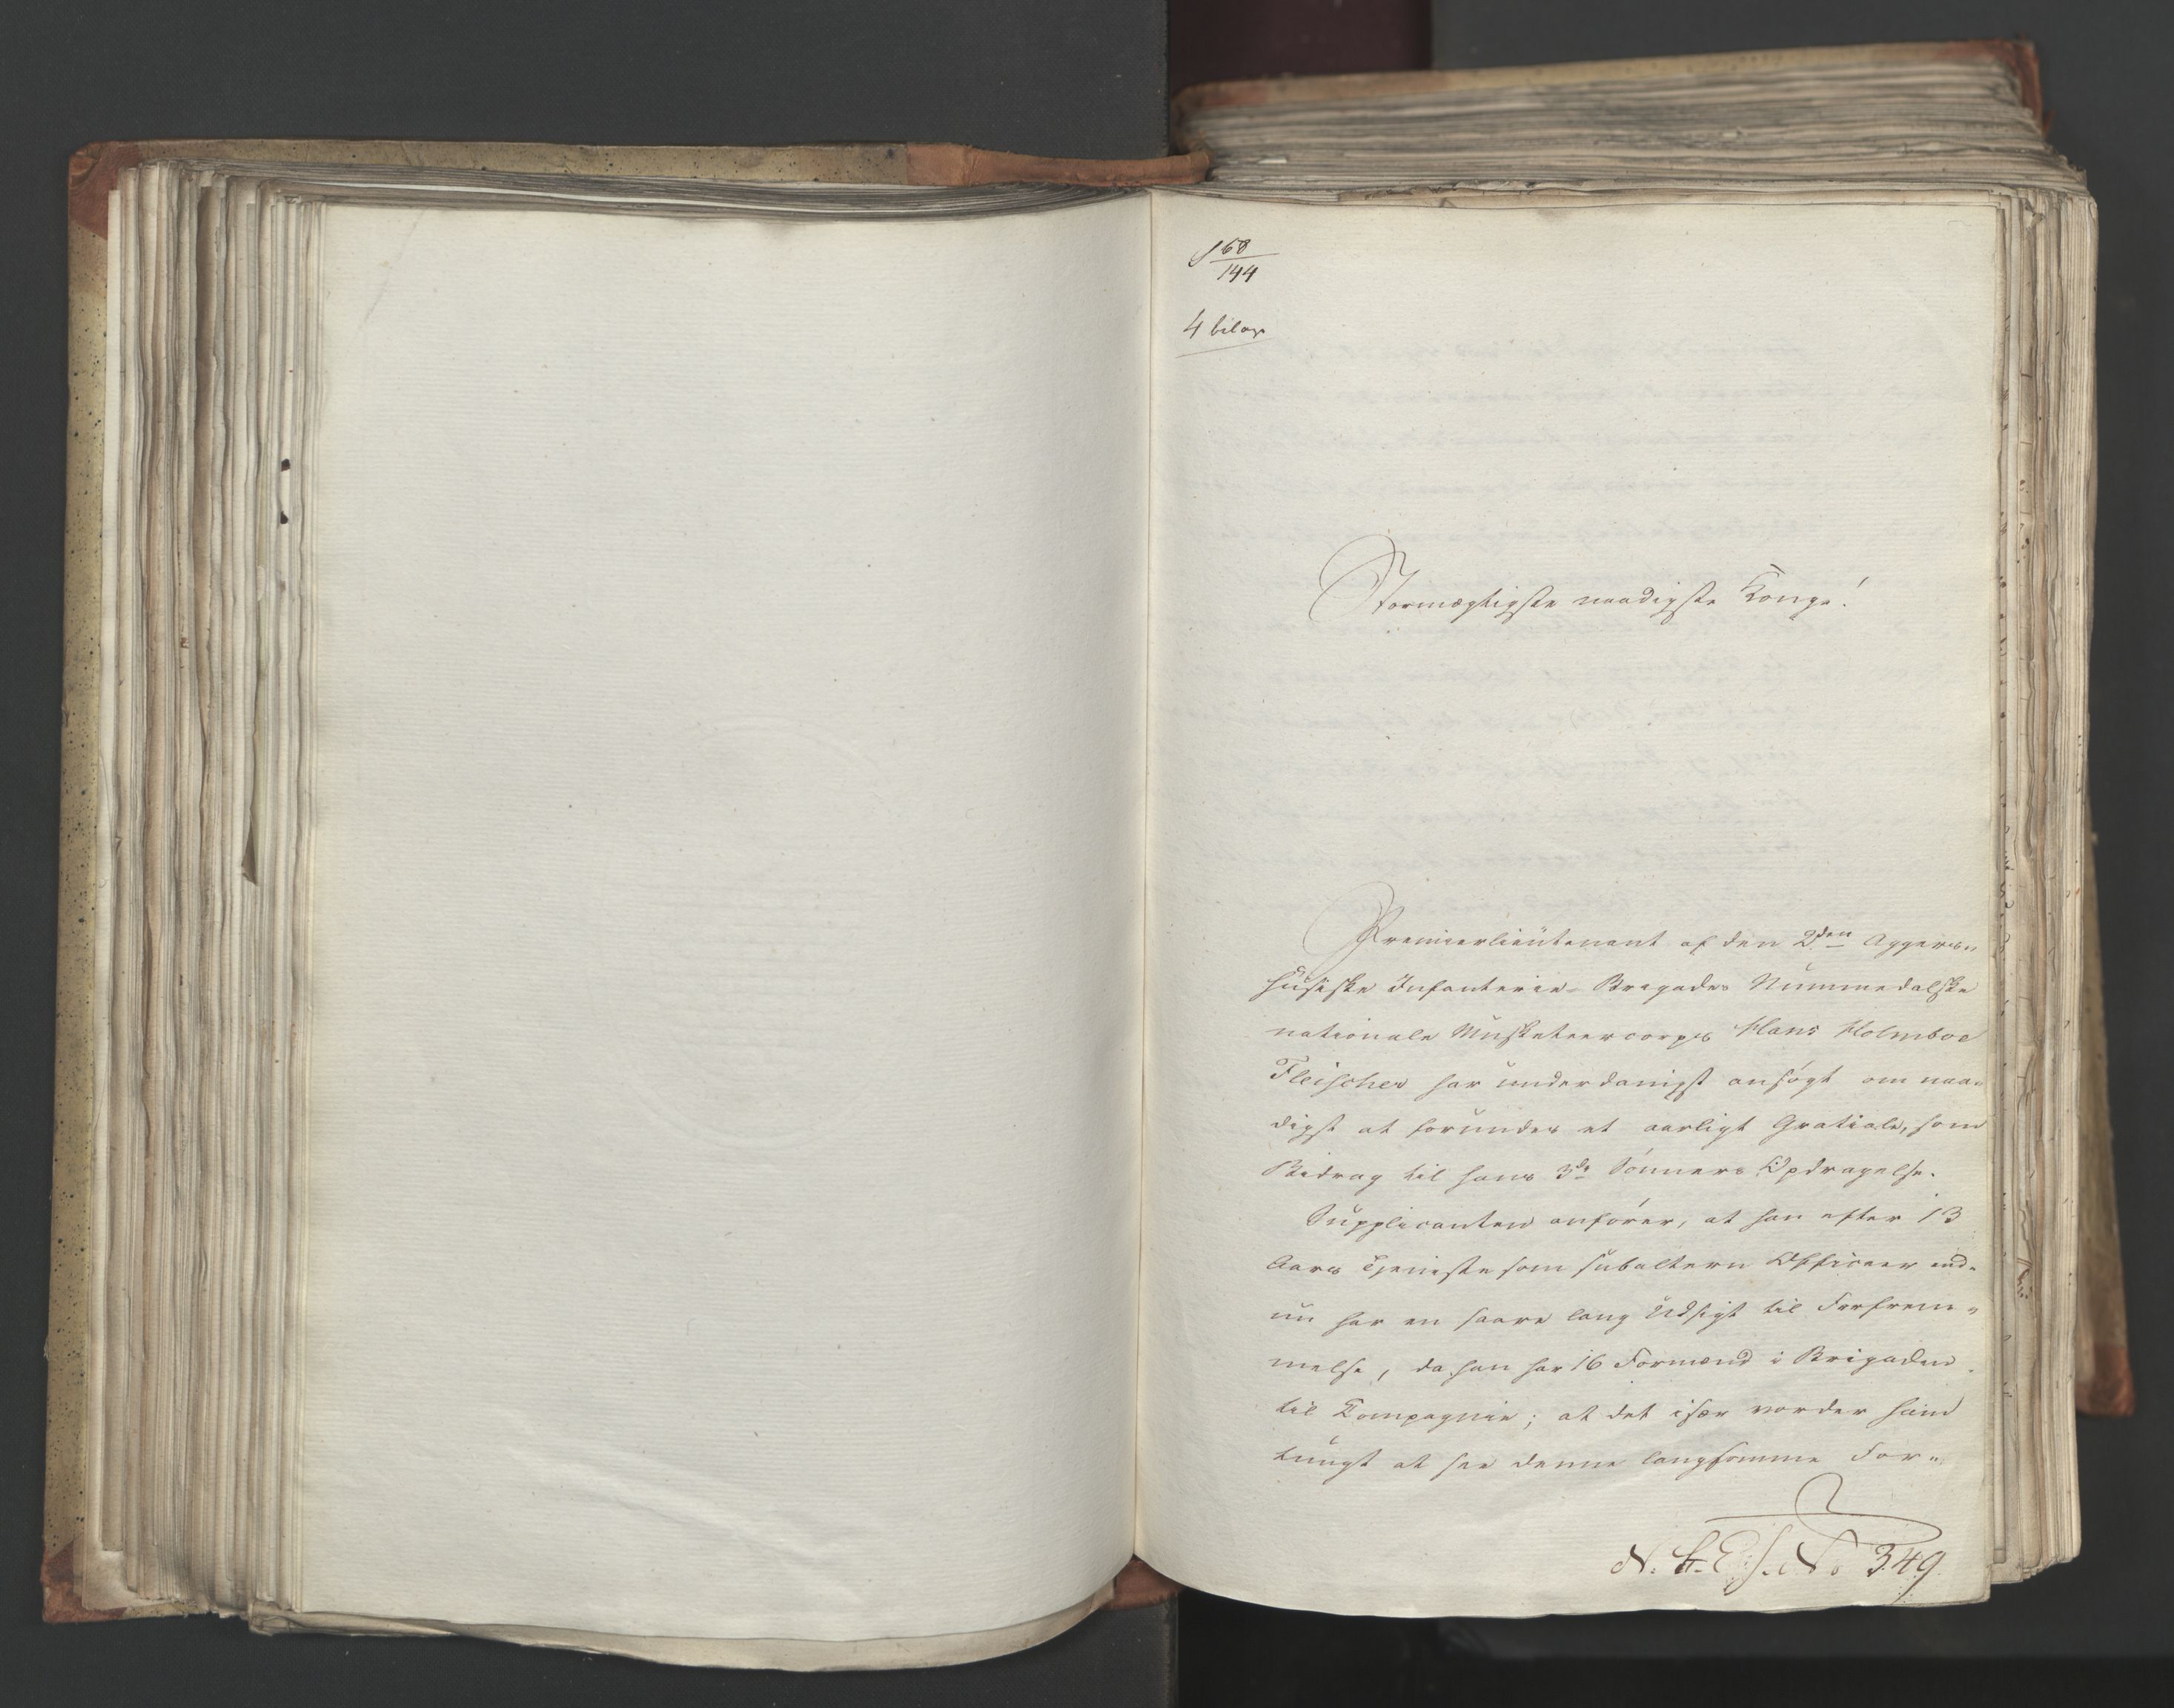 § 68
144
4 bilag
Stormægtigste naadigste Konge!
Premierlieutenant af den 2den Aggers„
huusiske Infanterie-Brigades Nummedalske
nationale Musketeercorps Hans Holmboe
Fleischer har underdanigst ansøgt om naa„
digst at forundes et aarligt Gratiale, som
Bidrag til hans 3de Sönners Opdragelse.
Supplicanten anfører, at han efter 13
Aars Tjeneste som subaltern Officeer end„
nu har en saare lang Udsigt til Forfrem„
melse, da han har 16 Formænd i Brigaden
til Compagnie; at det især vorder ham
tungt at see denne langsomme For„
No 349